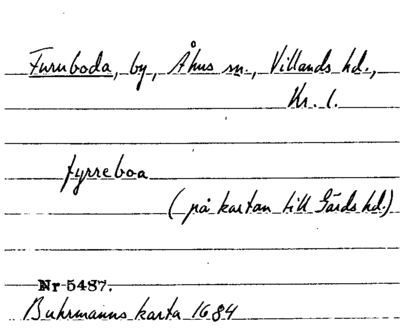 Furuboda, by, Åhus sn., Villands hd.,
Kr. l.
fyrreboa
(på kartan till Gärds hd.)
Nr 5487.
Buhrmanns karta 1684